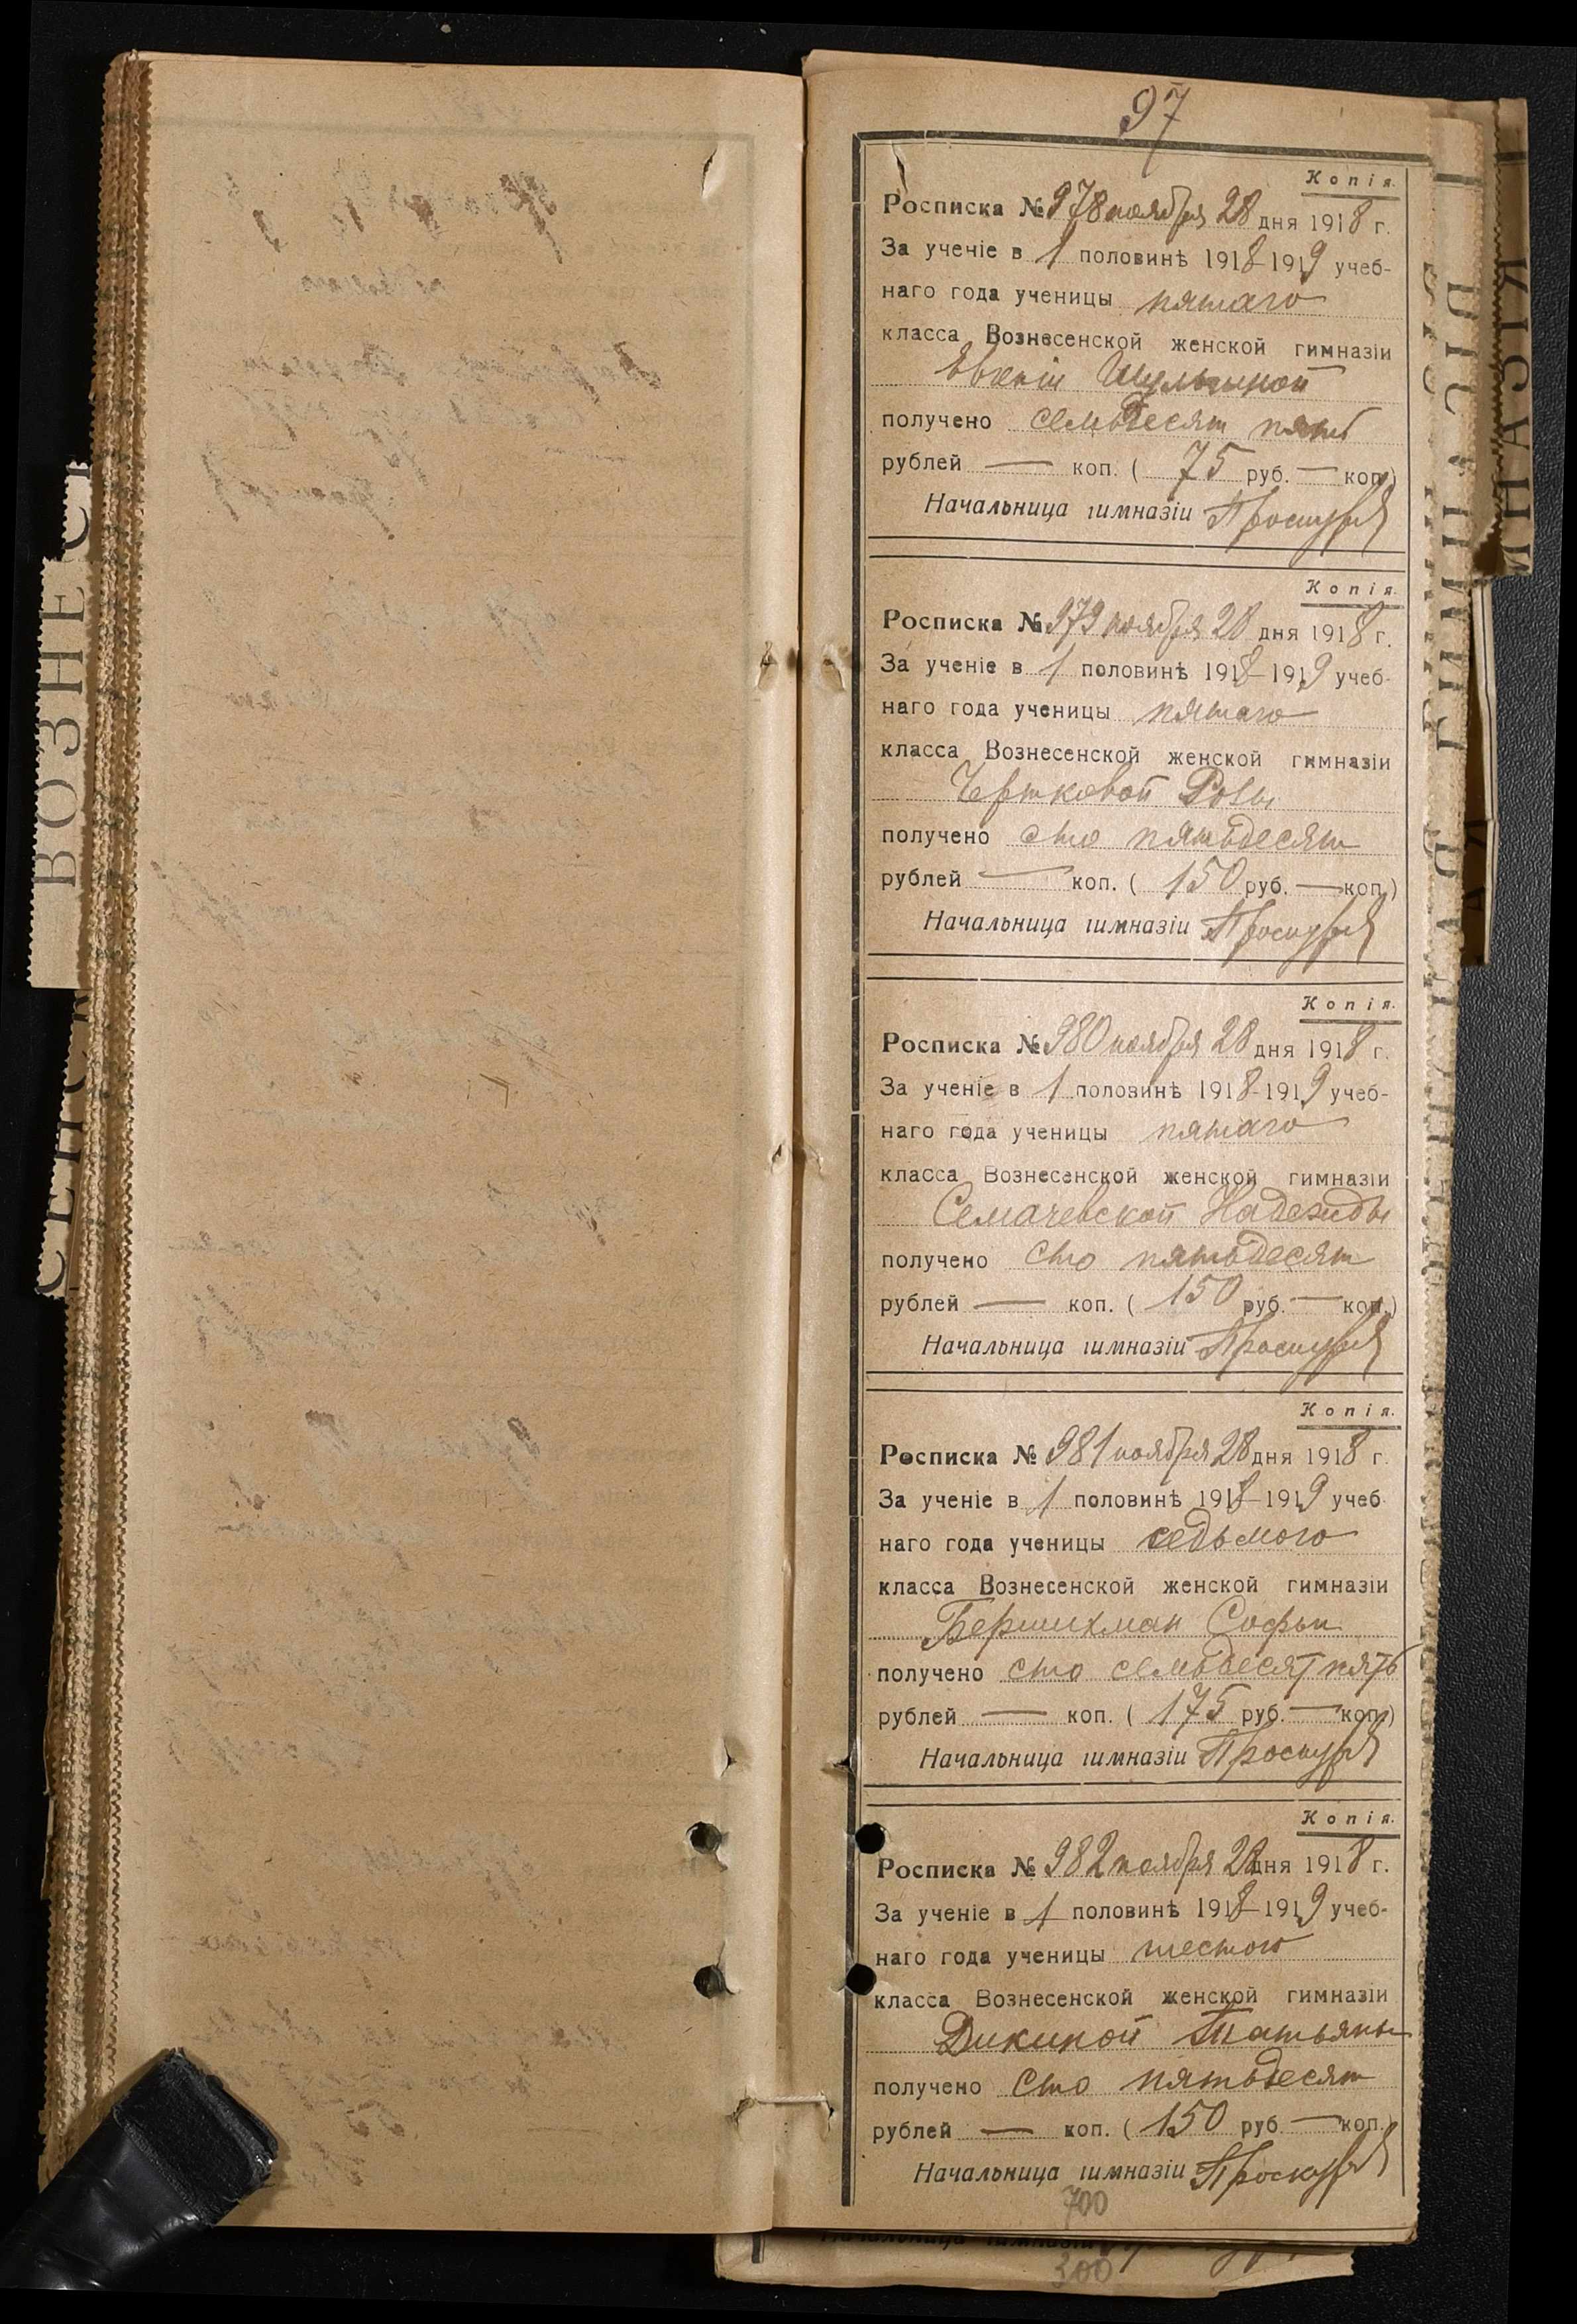 97
Копія.
Росписка № 978 ноября 28 дня 1918 г.
За ученіе в 1 половинѣ 1918-1919 учеб-
наго года ученицы пятаго
класса Вознесенской женской гимназіи
Евгеніи Шульгиной
получено семьдесят пять
рублей — коп. ( 75 руб. — коп.)
Начальница гимназіи
Копія.
Росписка № 979 ноября 28 дня 1918 г.
За ученіе в 1 половинѣ 1918-1919 учеб-
наго года ученицы пятаго
класса Вознесенской женской гимназіи
Чертковой Розы
получено сто пятьдесят
рублей — коп. ( 150 руб. — коп.)
Начальница гимназіи
Копія.
Росписка № 980 ноября 28 дня 1918 г.
За ученіе в 1 половинѣ 1918-1919 учеб-
наго года ученицы пятаго
класса Вознесенской женской гимназіи
Семачевской Надежды
получено сто пятьдесят
рублей — коп. ( 150 руб. — коп.)
Начальница гимназіи
Копія.
Росписка № 981 ноября 28 дня 1918 г.
За ученіе в 1 половинѣ 1918-1919 учеб
наго года ученицы седьмого
класса Вознесенской женской гимназіи
Бершихман Софьи
получено сто семьдесят пять
рублей — коп. ( 175 руб. — коп.)
Начальница гимназіи
Копія.
Росписка № 982 ноября 28 дня 1918 г.
За ученіе в 1 половинѣ 1918-1919 учеб-
наго года ученицы шестого
класса Вознесенской женской гимназіи
Дикиной Татьяны
получено сто пятьдесят
рублей — коп. ( 150 руб — коп.)
Начальница гимназіи
700
Начальница гимназіи
300
ВОЗНЕС